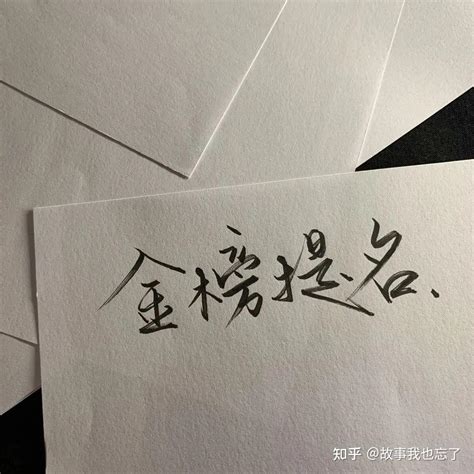 金榜提名.
知乎 @故事我也忘了